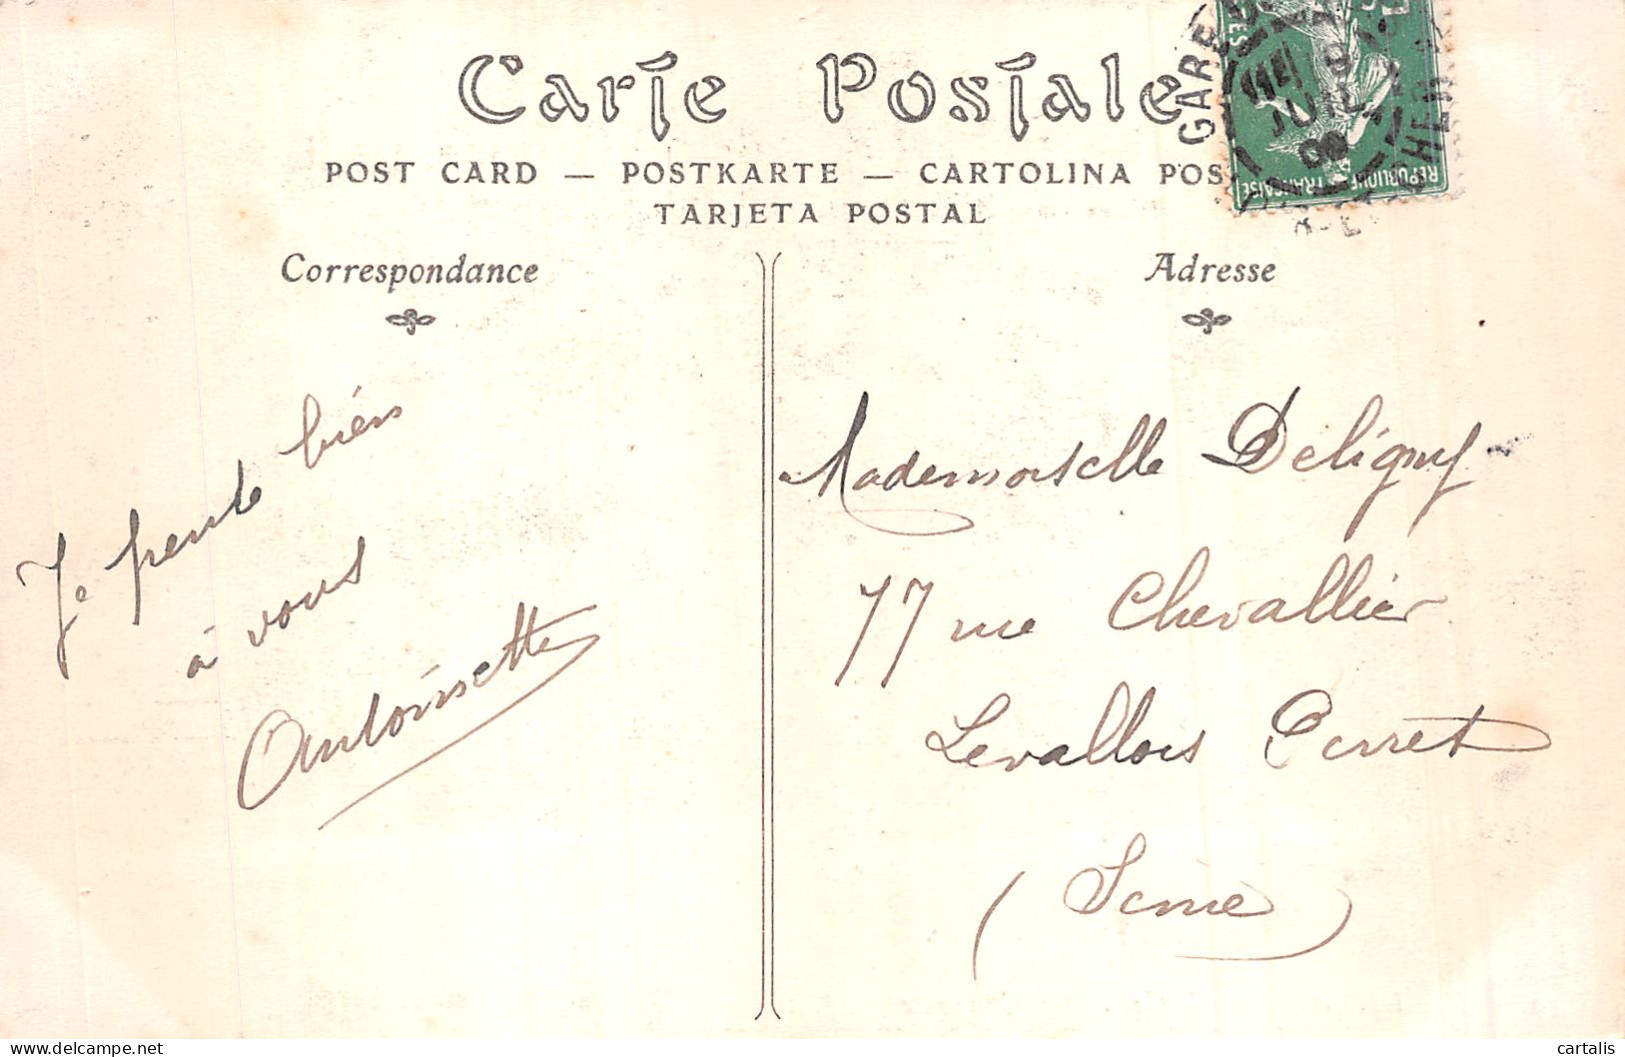 Carte Postale
POST CARD — POSTKARTE — CARTOLINA POS
TARJETA POSTAL
Correspondance
Adresse
Je pense bien
à vous
Antoinette
Mademoiselle Deligny
77 rue Chevallier
Levallois Perret
(Seine)
GARE
CHER
REPUBLIQUE FRANÇAISE
delcampe.net
cartalis